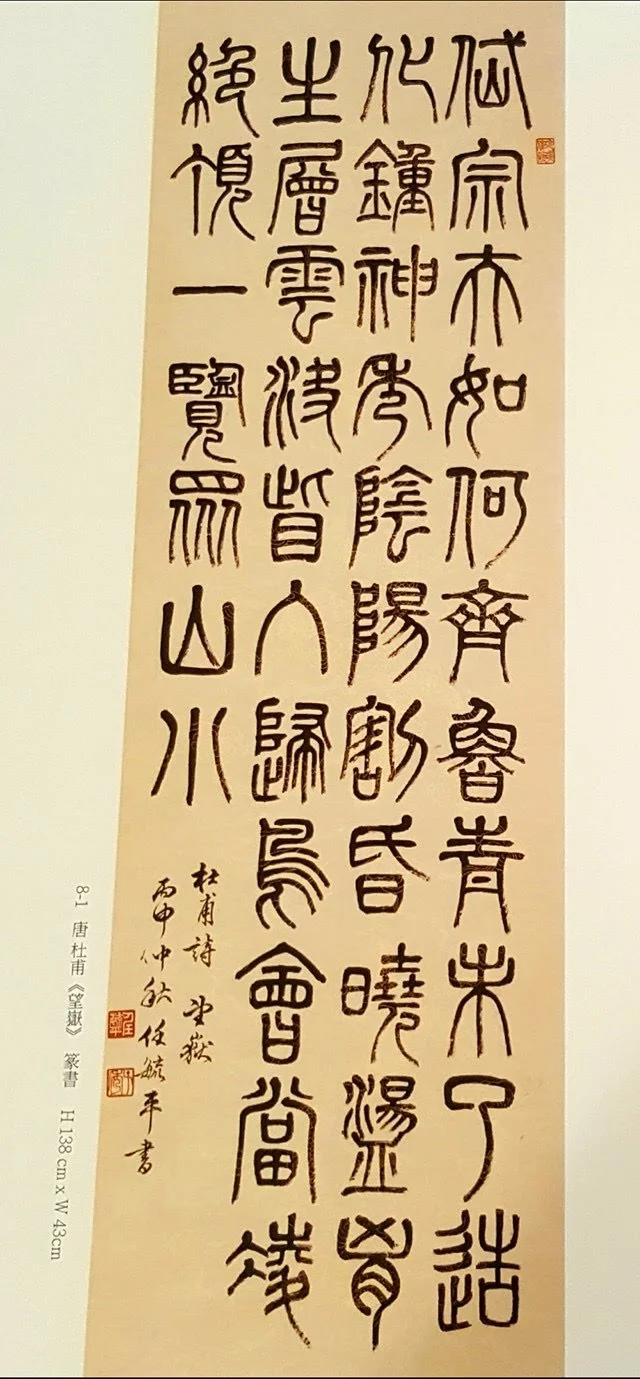 岱宗夫如何齊魯青未了造
化鐘神秀陰陽割昏曉盪胷
生層雲決眥入歸鳥會當凌
絕頂一覽眾山小
杜甫詩 望嶽
丙申仲秋任毓平書
8-1 唐 杜甫《望嶽》 篆書 H 138 cm x W 43cm